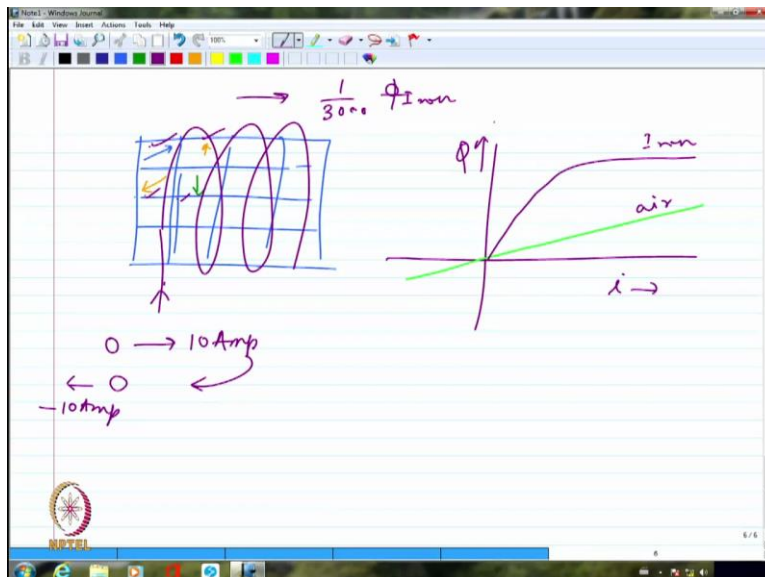 Note1 - Windows Journal
File Edit View Insert Actions Tools Help
100%
B I
→ 1/3000 ΦIron
Φ↑
Iron
air
i →
0 → 10 Amp
← 0
-10 Amp
NPTEL
6/6
6